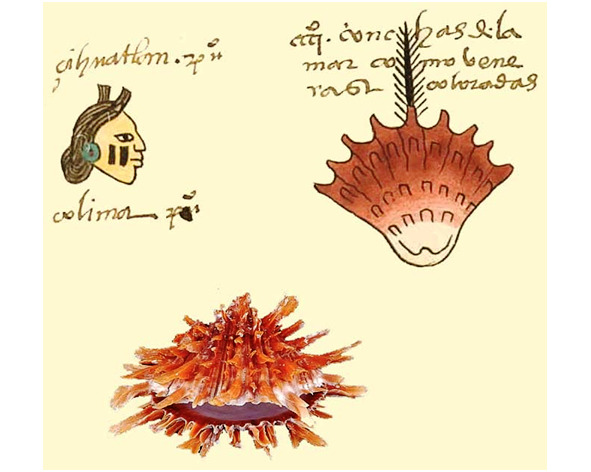 çihuatlan. puº
colima puº
conchas de la
mar como bene
ras coloradas